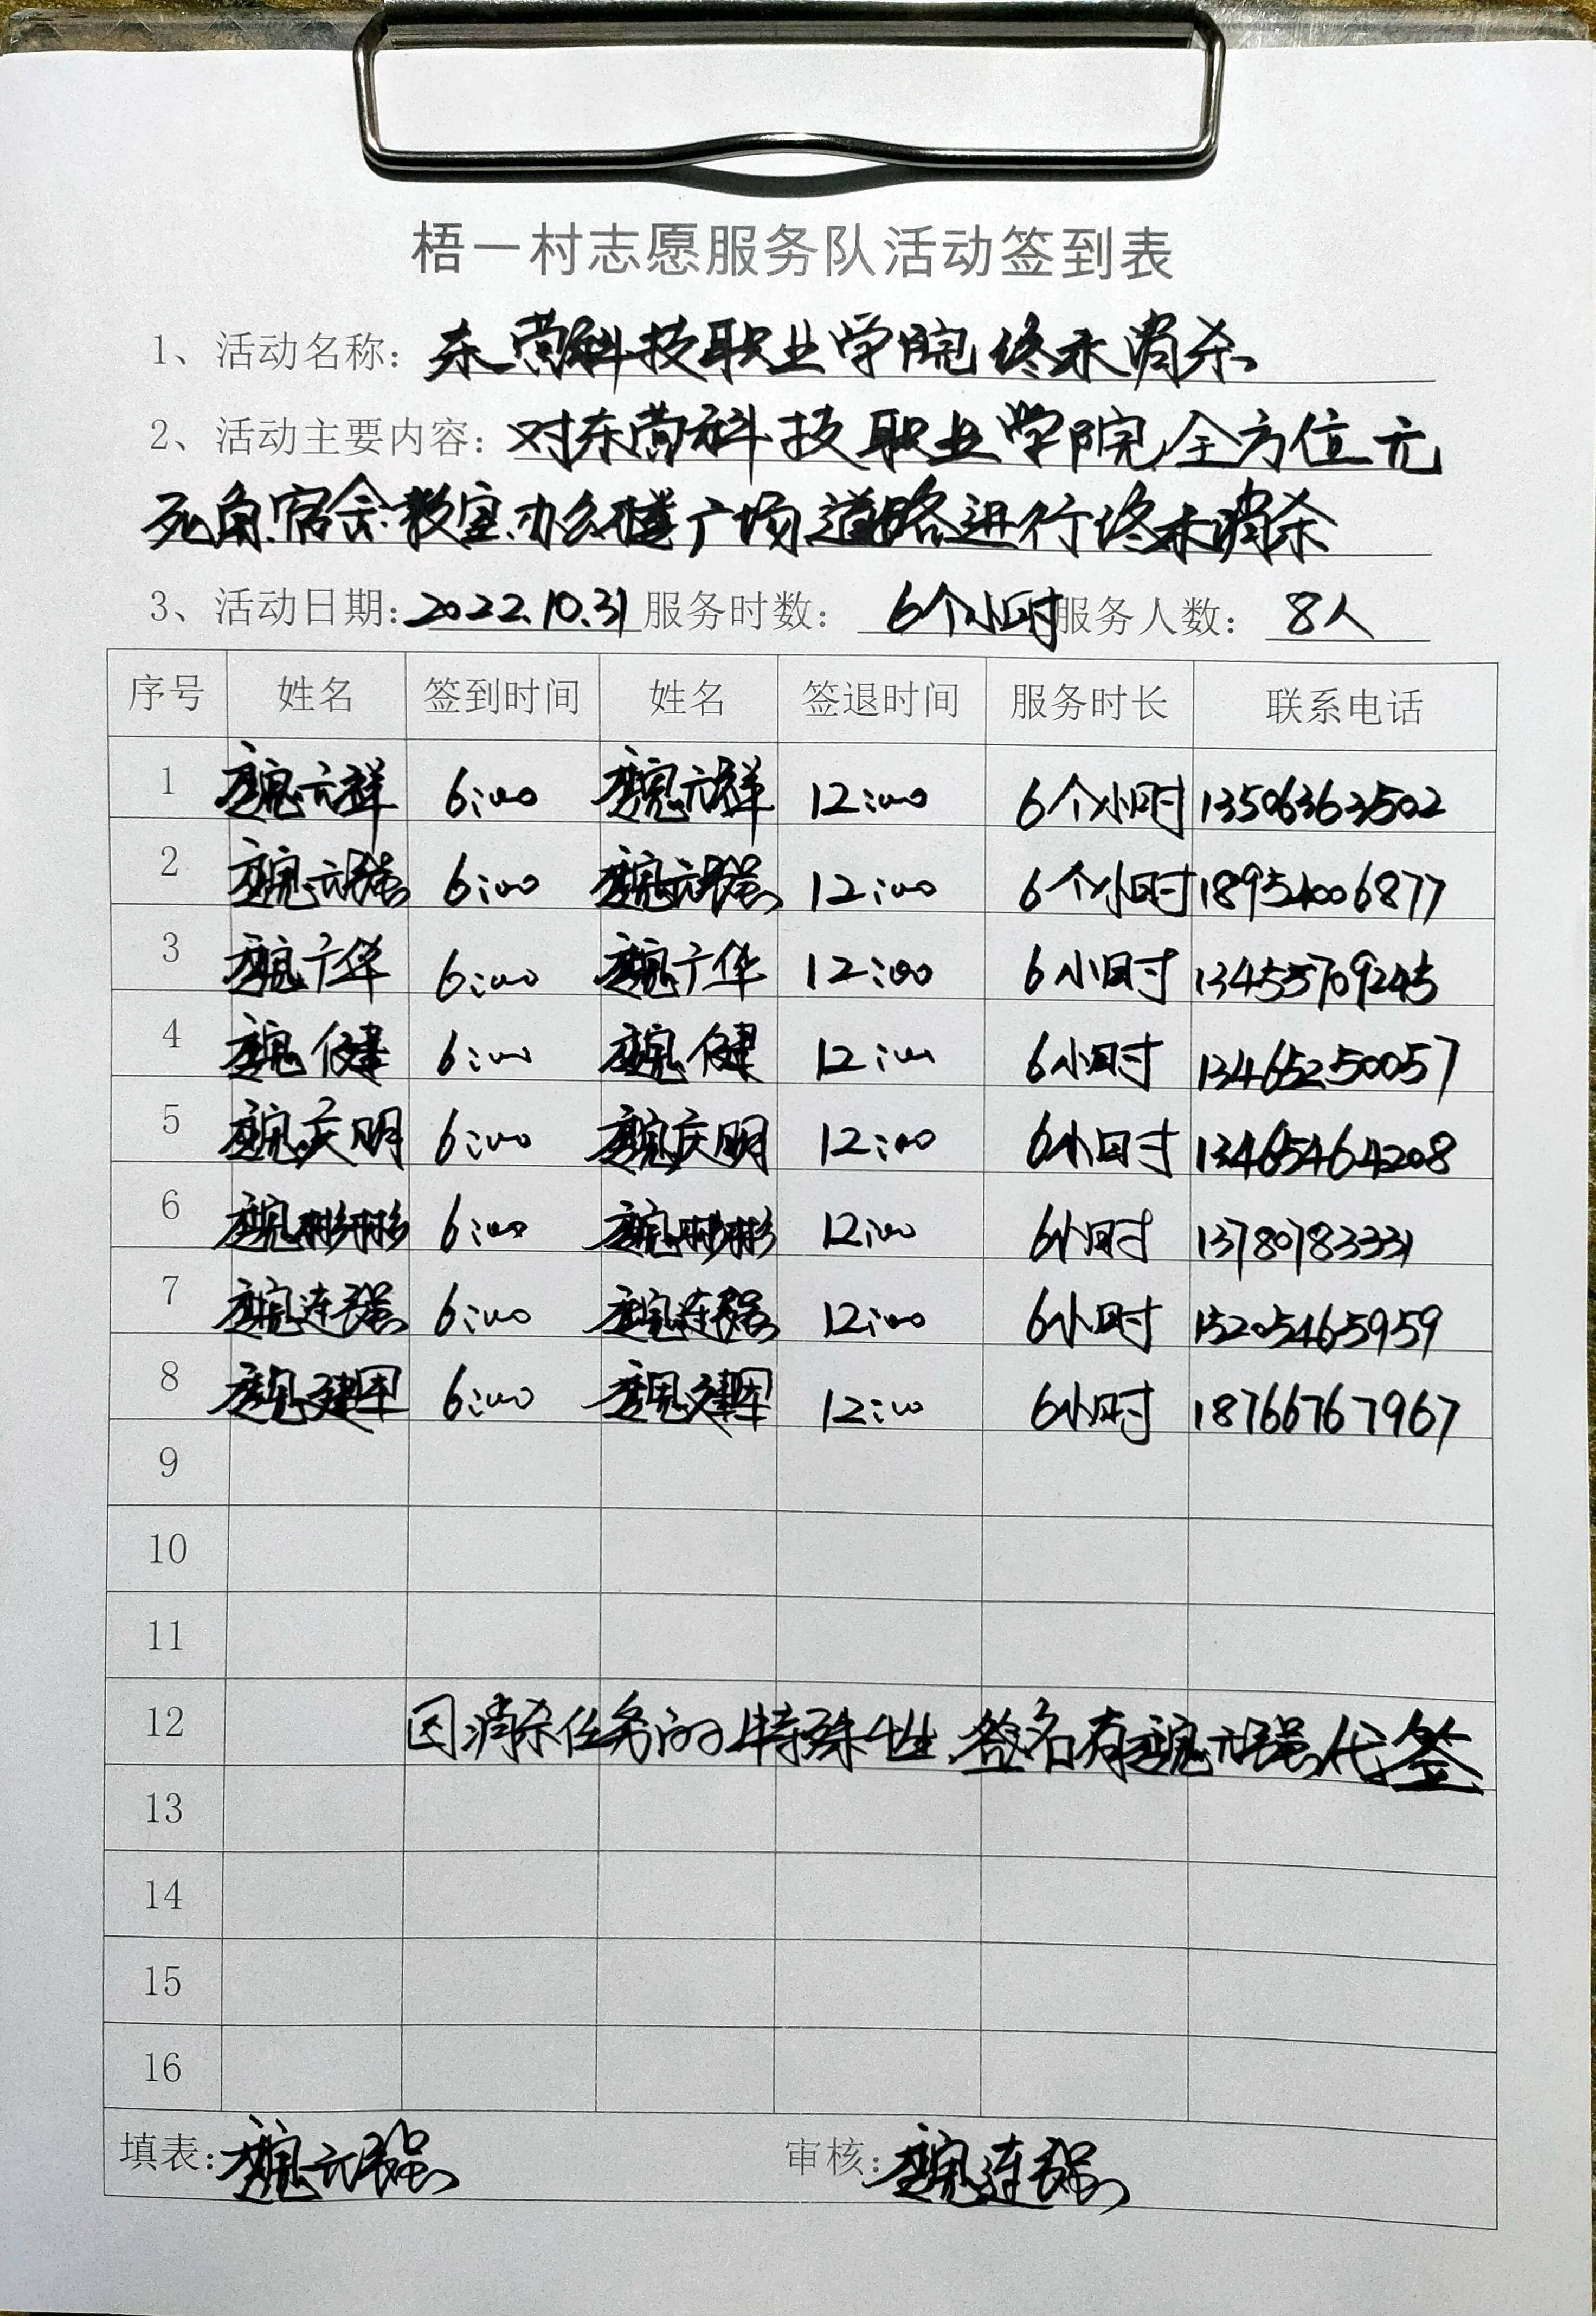 梧一村志愿服务队活动签到表
1、活动名称: 东营科技职业学院终末消杀
2、活动主要内容: 对东营科技职业学院全方位无
死角.宿舍.教室.办公楼广场道路进行终末消杀
3、活动日期: 2022.10.31 服务时数: 6个小时 服务人数: 8人
序号 姓名 签到时间 姓名 签退时间 服务时长 联系电话
1 魏元祥 6:00 魏元祥 12:00 6个小时 13506363502
2 魏元强 6:00 魏元强 12:00 6个小时 18954006877
3 魏广华 6:00 魏广华 12:00 6小时 13455709245
4 魏健 6:00 魏健 12:00 6小时 13465250057
5 魏庆明 6:00 魏庆明 12:00 6小时 13465464208
6 魏彬彬 6:00 魏彬彬 12:00 6小时 13780783331
7 魏连强 6:00 魏连强 12:00 6小时 15205465959
8 魏建军 6:00 魏建军 12:00 6小时 18766767967
9
10
11
12 因消杀任务的特殊性.签名有魏元强代签
13
14
15
16
填表: 魏元强 审核: 魏连强